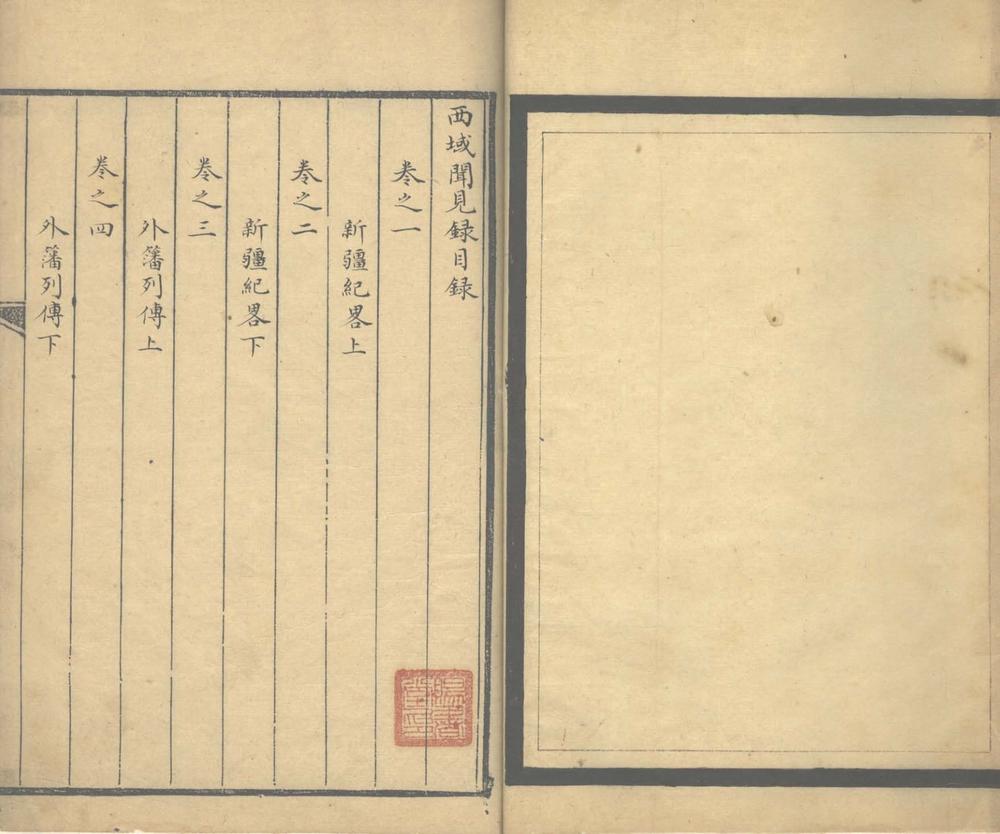 西域聞見録目録
卷之一
新疆紀畧上
卷之二
新疆紀畧下
卷之三
外藩列傳上
卷之四
外藩列傳下